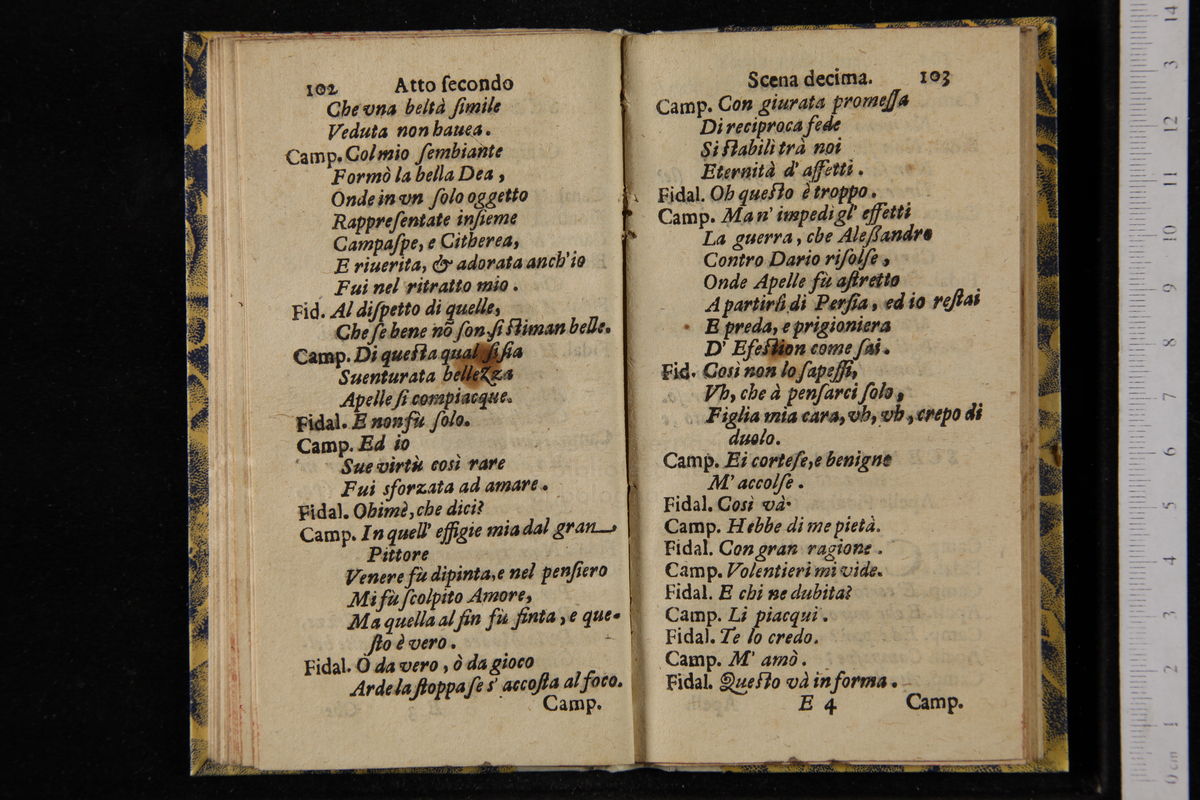 102 Atto ſecondo
Che vna beltà ſimile
Veduta non hauea.
Camp. Col mio ſembiante
Formò la bella Dea,
Onde in vn ſolo oggetto
Rappreſentate inſieme
Campaſpe, e Citherea,
E riuerita, & adorata anch'io
Fui nel ritratto mio.
Fid. Al diſpetto di quelle,
Che ſe bene nõ ſon, ſi ſtiman belle.
Camp. Di queſta qual ſi ſia
Suenturata bellezza
Apelle ſi compiacque.
Fidal. E non fù ſolo.
Camp. Ed io
Sue virtù così rare
Fui sforzata ad amare.
Fidal. Ohimè, che dici?
Camp. In quell' effigie mia dal gran
Pittore
Venere fù dipinta, e nel penſiero
Mi fù ſcolpito Amore,
Ma quella al fin fù finta, e que-
ſto è vero.
Fidal. O da vero, ò da gioco
Arde la ſtoppa ſe s' accoſta al foco.
Camp.
Scena decima. 103
Camp. Con giurata promeſſa
Di reciproca fede
Si ſtabilì trà noi
Eternità d' affetti.
Fidal. Oh queſto è troppo.
Camp. Ma n' impedì gl' effetti
La guerra, che Aleſſandro
Contro Dario riſolſe,
Onde Apelle fù aſtretto
A partirſi di Perſia, ed io reſtai
E preda, e prigioniera
D' Efeſtion come ſai.
Fid. Così non lo ſapeſſi,
Vh, che à penſarci ſolo,
Figlia mia cara, vh, vh, crepo di
duolo.
Camp. Ei corteſe, e benigno
M' accolſe.
Fidal. Così và.
Camp. Hebbe di me pietà.
Fidal. Con gran ragione.
Camp. Volentieri mi vide.
Fidal. E chi ne dubita?
Camp. Li piacqui.
Fidal. Te lo credo.
Camp. M' amò.
Fidal. Queſto và in forma.
E 4 Camp.
14
3
12
11
10
9
8
7
6
5
4
3
2
1
0 cm